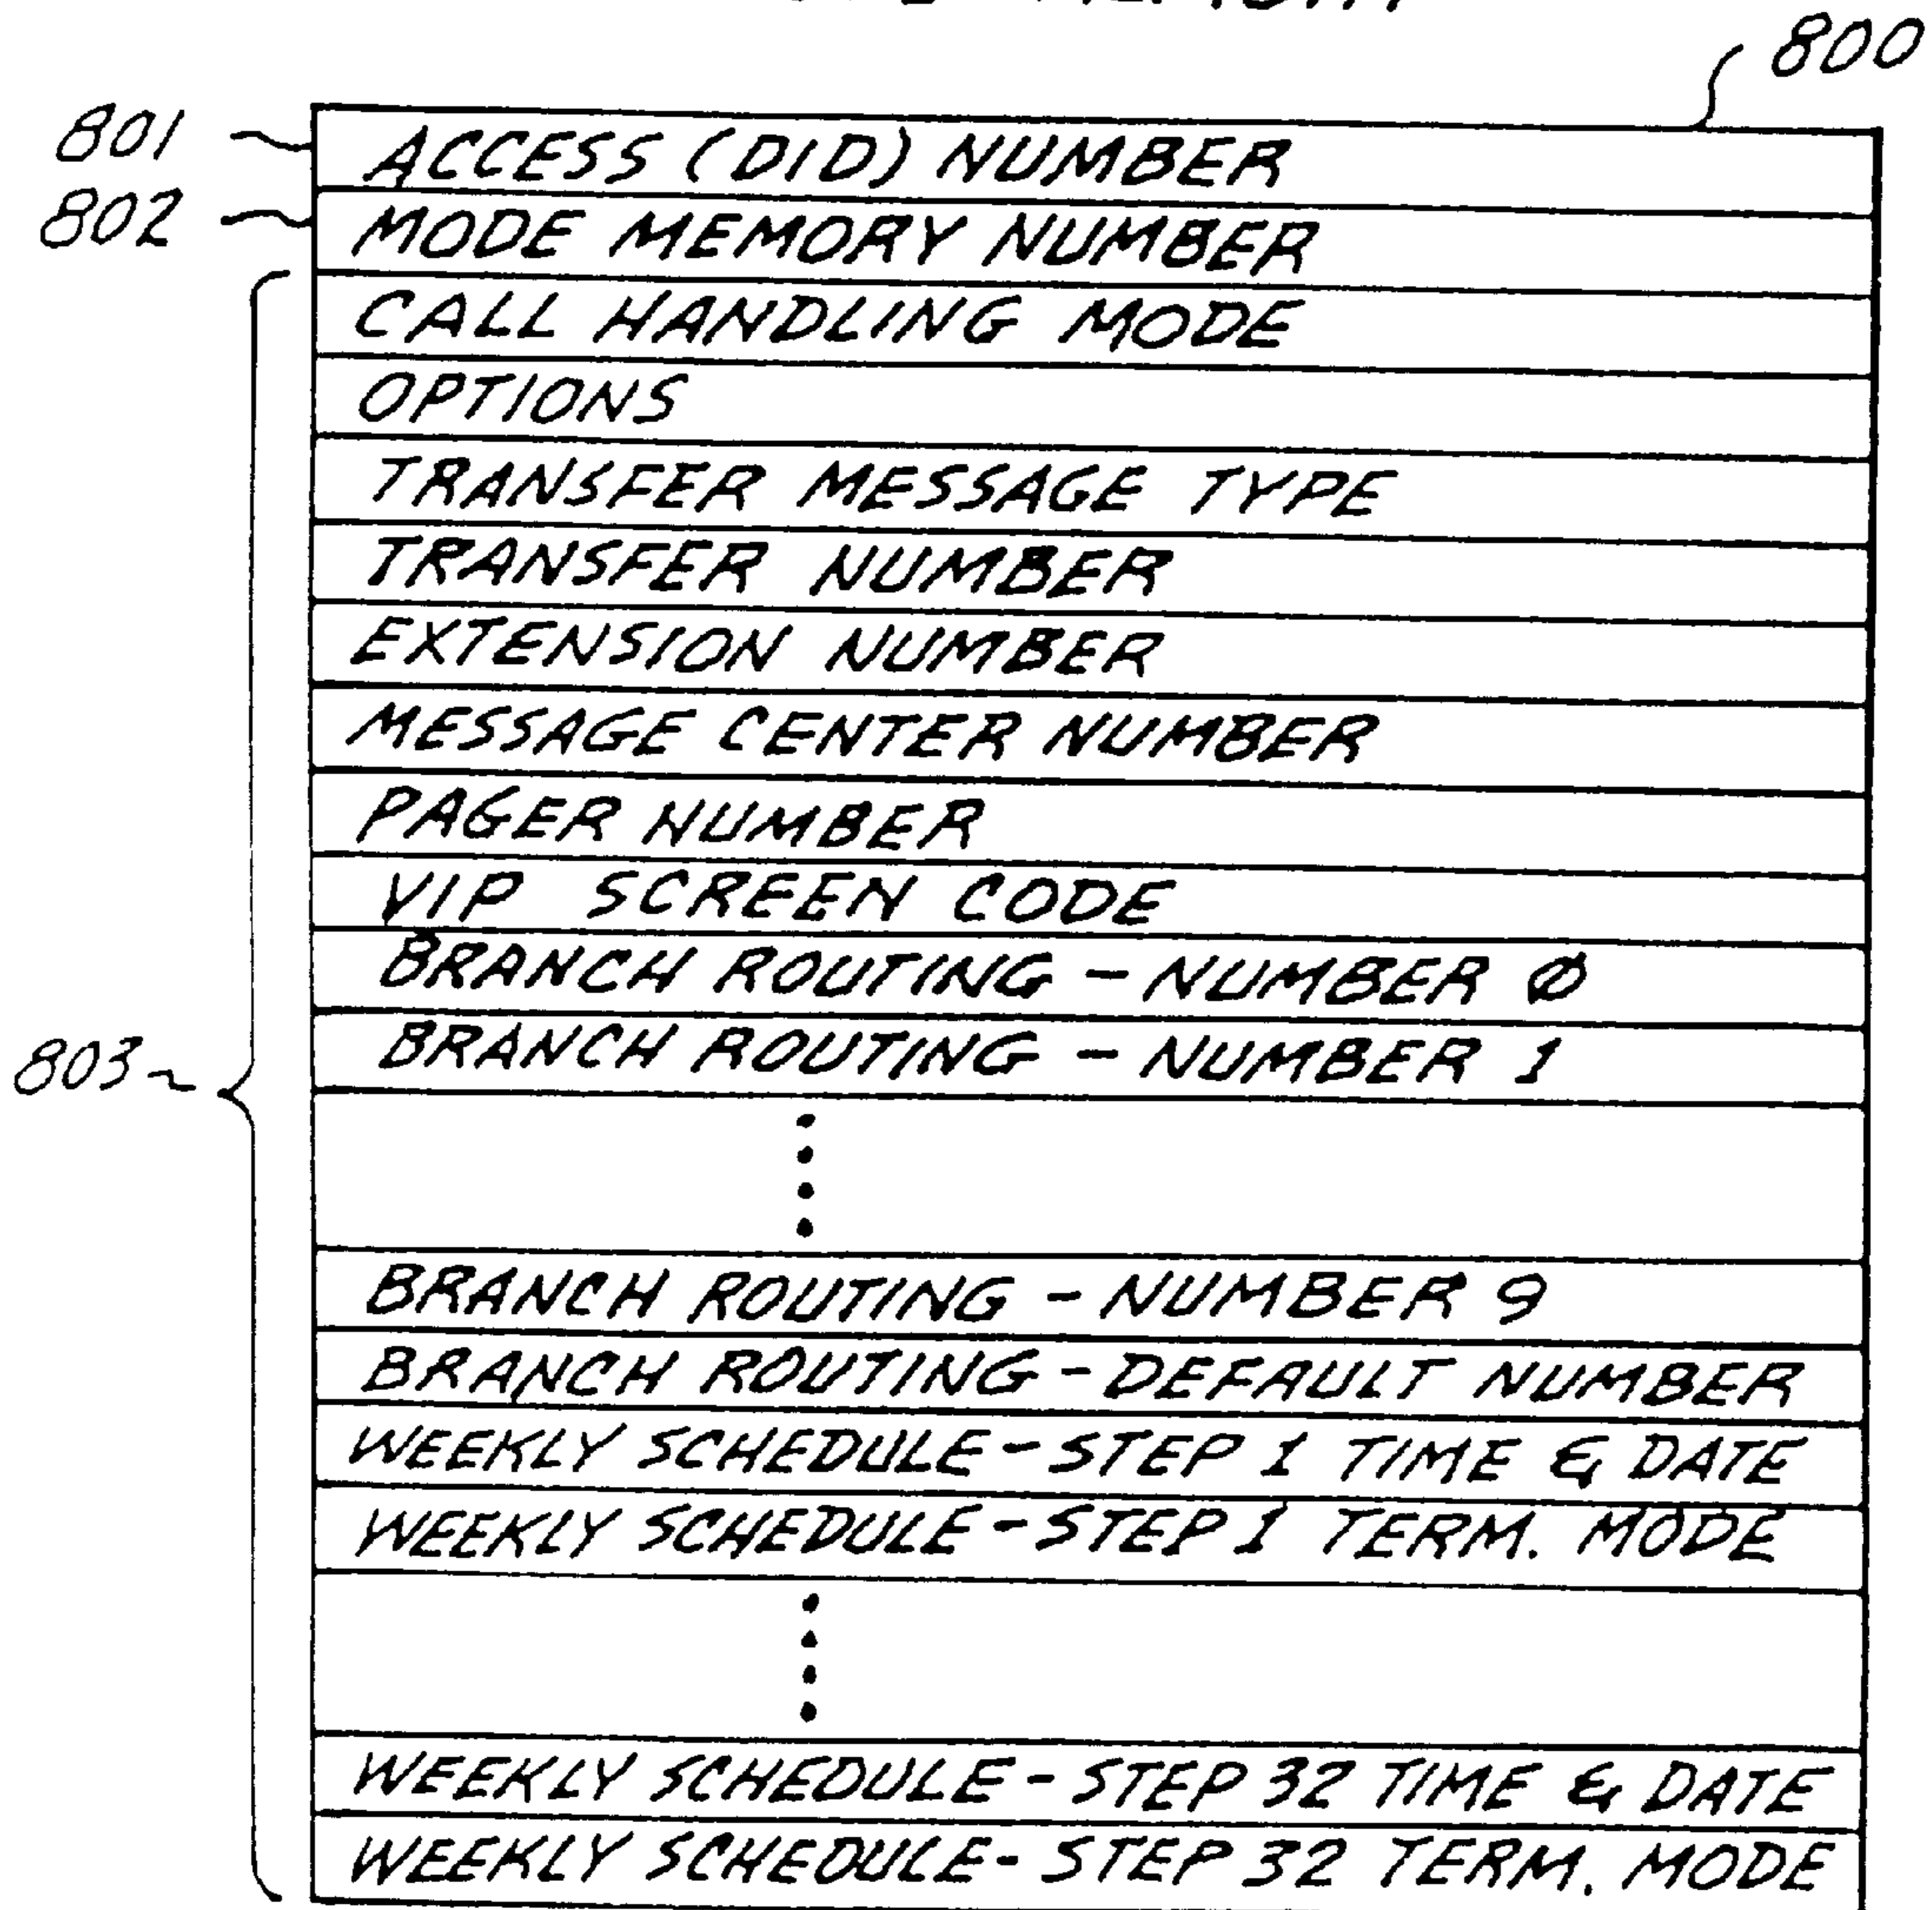 800
801 ACCESS (DID) NUMBER
802 MODE MEMORY NUMBER
CALL HANDLING MODE
OPTIONS
TRANSFER MESSAGE TYPE
TRANSFER NUMBER
EXTENSION NUMBER
MESSAGE CENTER NUMBER
PAGER NUMBER
VIP SCREEN CODE
BRANCH ROUTING - NUMBER 0
803 BRANCH ROUTING - NUMBER 1
BRANCH ROUTING - NUMBER 9
BRANCH ROUTING - DEFAULT NUMBER
WEEKLY SCHEDULE - STEP 1 TIME & DATE
WEEKLY SCHEDULE - STEP 1 TERM. MODE
WEEKLY SCHEDULE - STEP 32 TIME & DATE
WEEKLY SCHEDULE - STEP 32 TERM. MODE